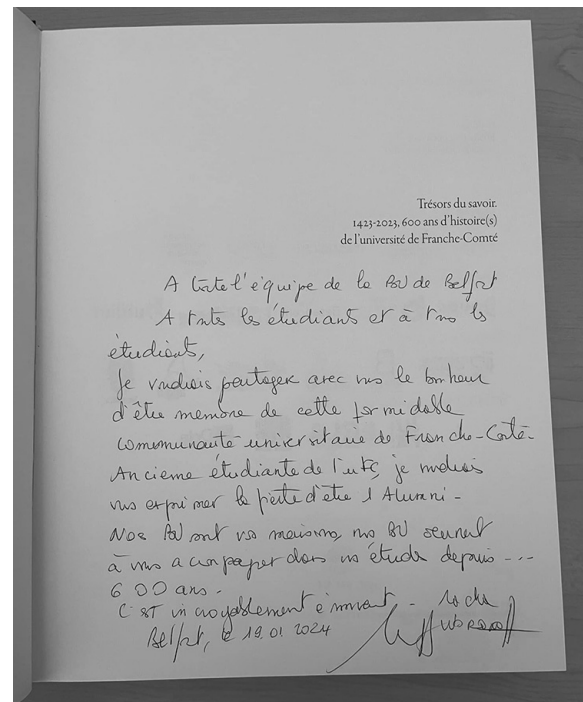 Trésors du savoir.
1423-2023, 600 ans d'histoire(s)
de l'université de Franche-Comté
A toute l'équipe de la BU de Belfort
A toutes les étudiants et à tous les
étudiants,
je voudrais partager avec vous le bonheur
d'être membre de cette formidable
communauté universitaire de Franche-Comté.
Ancienne étudiante de l'UFC, je voudrais
vous exprimer la fierté d'être 1 Alumni -
Nos BU sont vos maisons, nos BU servent
à vous accompagner dans vos études depuis ---
600 ans.
C'est incroyablement émouvant -
Belfort, le 19.01 2024